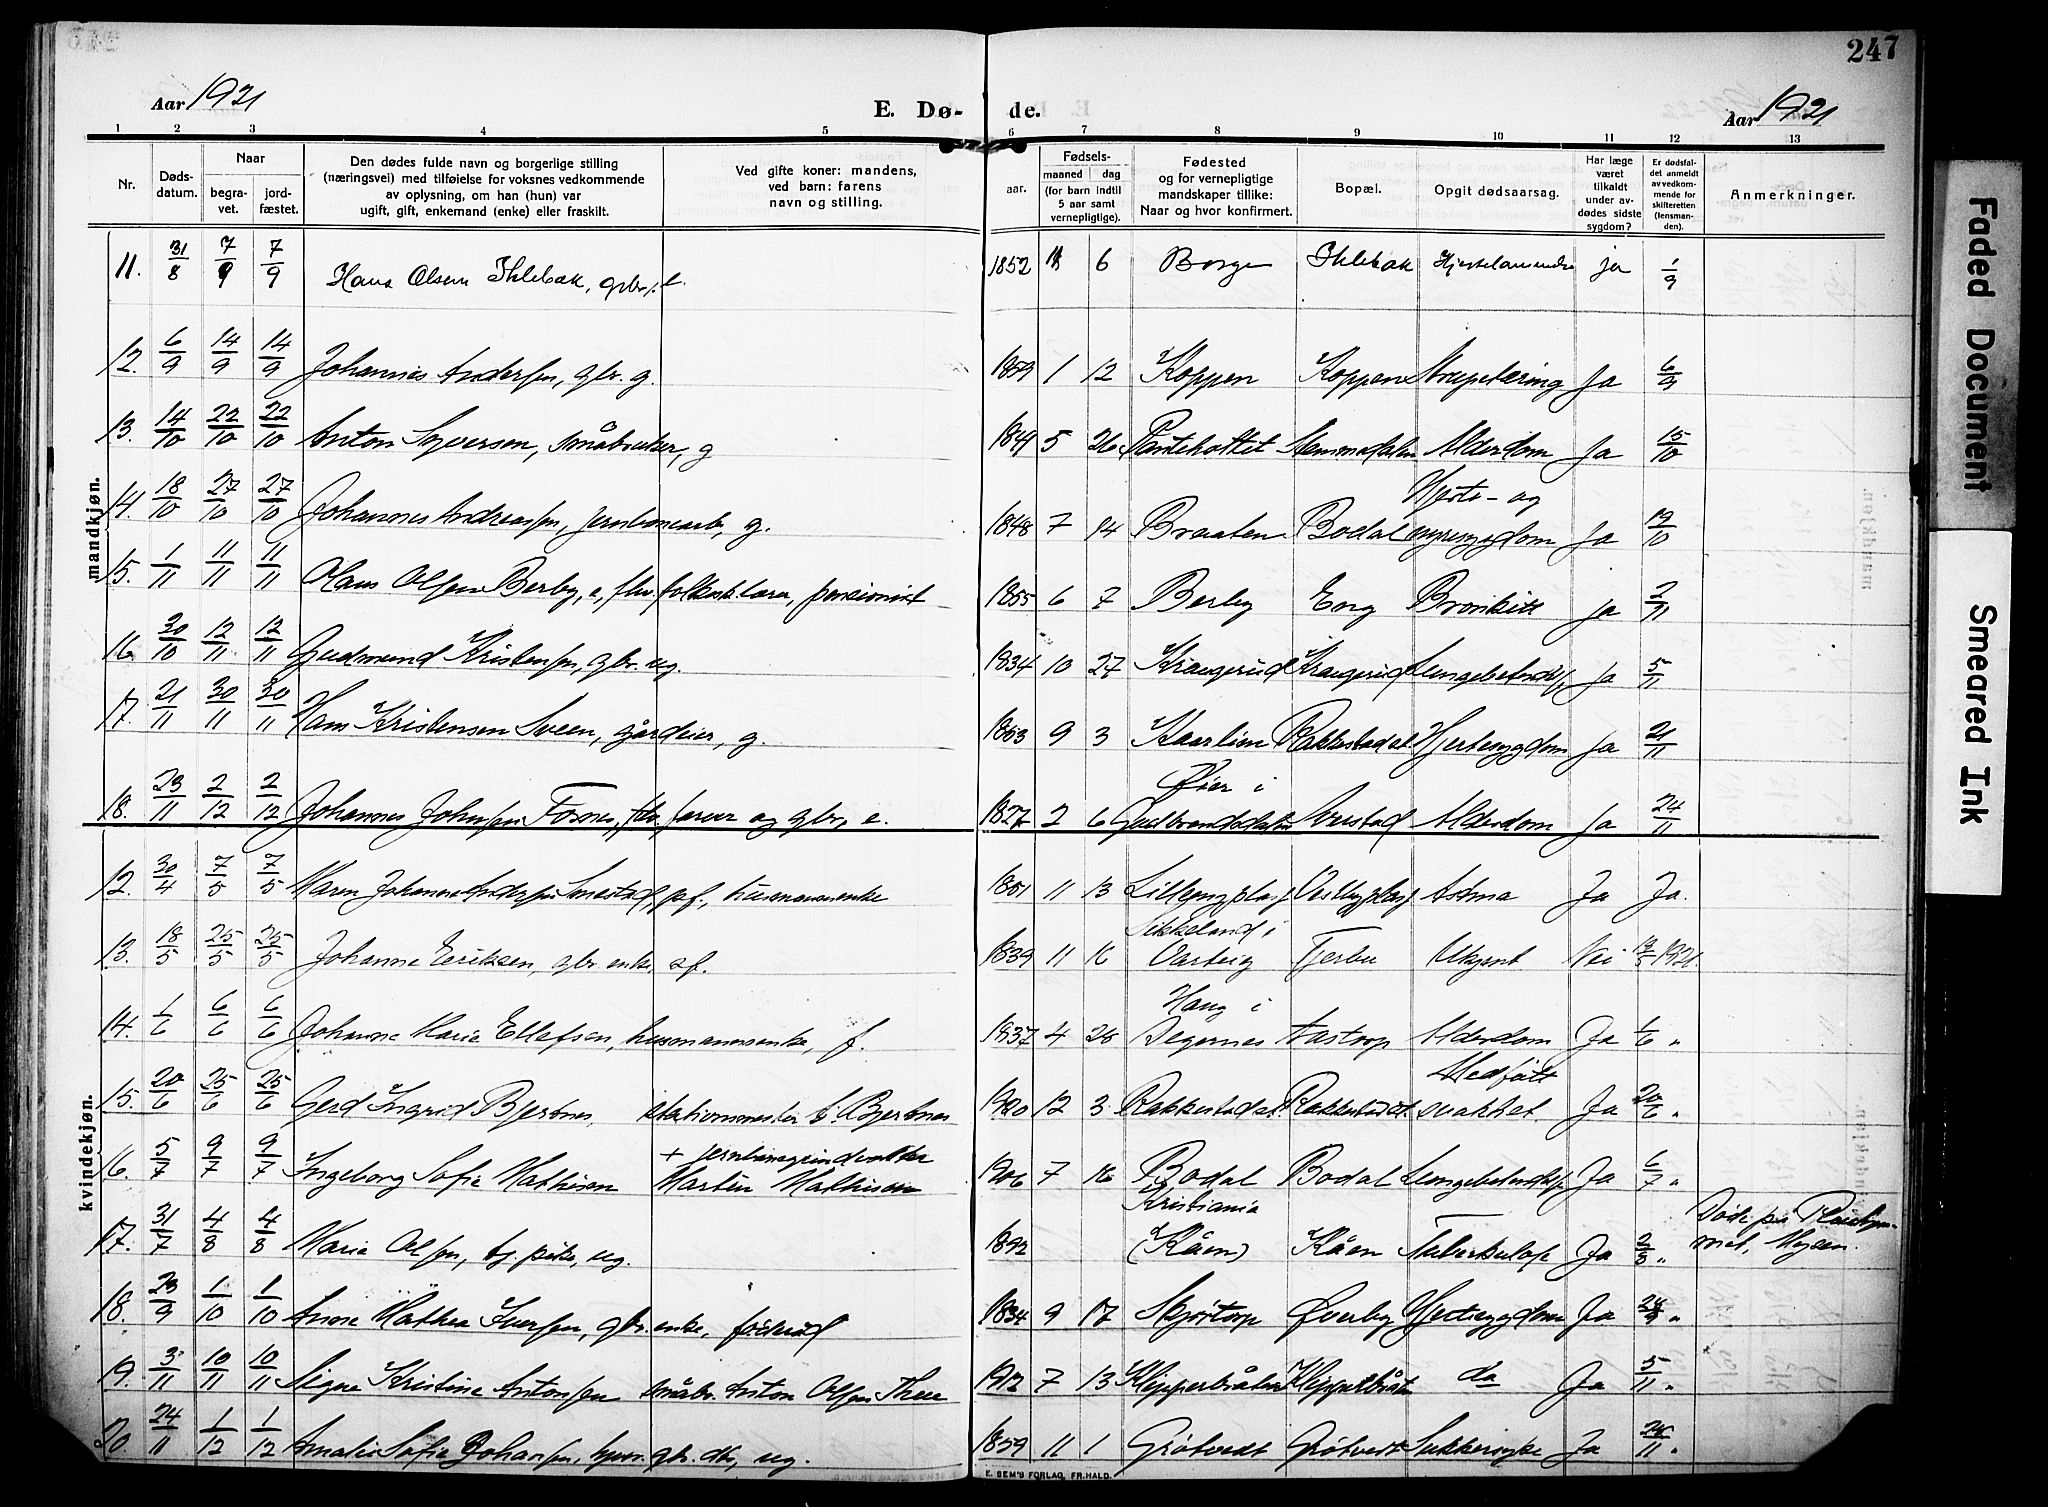 247
Aar 1921
E. Dø- de.
Aar 1921
1 2 3 4 5 6 7 8 9 10 11 12 13
Nr.
Døds-
datum.
Naar
begra-
vet.
jord-
fæstet.
Den dødes fulde navn og borgerlige stilling
(næringsvei) med tilføielse for voksnes vedkommende
av oplysning, om han (hun) var
ugift, gift, enkemand (enke) eller fraskilt.
Ved gifte koner: mandens,
ved barn: farens
navn og stilling.
aar.
Fødsels-
maaned dag
(for barn indtil
5 aar samt
vernepligtige).
Fødested
og for vernepligtige
mandskaper tillike:
Naar og hvor konfirmert.
Bopæl.
Opgit dødsaarsag.
Har læge
været
tilkaldt
under av-
dødes sidste
sygdom?
Er dødsfal-
det anmeldt
av vedkom-
mende for
skifteretten
(lensman-
den).
Anmerkninger.
mandkjøn.
11. 31/8 7/9 7/9 Hans Olsen Ihlebæk, gbr. 1852 6 Borge Ihlebæk ja 1/9
12. 6/9 14/9 14/9 Johannes Andersen, gbr. g. 1859 1 12 Koppen Koppen Ja 6/9
13. 14/10 22/10 22/10 Anton Syversen, småbruker, g 1849 5 26 Alderdom Ja 15/10
14. 18/10 27/10 27/10 Johannes Andreassen, jernbanearb, g. 1848 7 14 Braaten Bodal Hjerte- og nyresygdom Ja 19/10
15. 1/11 11/11 11/11 Hans Olsen Berby, e, fhv. folkesk.lærer, pensionist 1855 6 7 Berby Eng Bronkitt ja 2/11
16. 30/10 12/11 12/11 Gudmund Kristensen, gbr. ug. 1834 10 27 Krangerud Krangerud Lungebetendls. Ja 5/11
17. 21/11 30/11 30/11 Hans Kristensen Sveen, gårdeier, g. 1853 9 3 Kaarlien Rakkestad st Hjertesygdom Ja 21/11
18. 23/11 2/12 2/12 Johannes Johnsen Fosnes, fhv. farver og gbr, e. 1827 2 6 Øier i Gudbrandsdalen Alderdom Ja 24/11
kvindekjøn.
12. 30/4 7/5 7/5 Maren Johanne Andersen husmannsenke 1851 11 13 Astma Ja Ja.
13. 18/5 25/5 25/5 Johanne Eriksen, gbr. enke, 1839 11 16 Sikkeland i Varteig Fjerbu Ukjent Nei 19/5 1921.
14. 1/6 6/6 6/6 Johanne Maria Ellefsen, husmannsenke, f. 1837 4 28 Haug i Degernes Aastorp Alderdom Ja 1/6 "
15. 20/6 25/6 25/6 Gerd Ingrid Bjertnes, stationsmester Bjertnes 1920 12 3 Rakkestad st. Rakkestad st. Medfött svakhet. Ja 20/6 "
16. 5/7 9/7 9/7 Ingeborg Sofie Mathisen + Martin Mathisen 1906 7 16 Bodal Bodal Lungebetendls. Ja 6/7 "
17. 31/7 4/8 4/8 Maria Olsen, tj. pike, ug. 1892 Kristiania (Kåen) Kåen Tuberkulose Ja 2/8 " Döde på Mysen.
18. 23/9 1/10 1/10 Anne Mathea Iversen, gbr. enke, föderåd 1834 9 17 Skjörtorp Øverby Hjertesygdom Ja 28/9 "
19. 3/11 10/11 10/11 Signe Kristine Antonsen småbr. Anton Olsen 1912 7 13 Klypperbråten Klypperbråten do Ja 5/11 "
20. 24/11 1/12 1/12 Amalie Sofie Johansen, gbr. dtr, ug. 1859 11 1 Grötvedt Grötvedt Sukkersyke Ja 26/11 "
E. SEM'S FORLAG, FR.HALD.
Faded Document
Smeared Ink